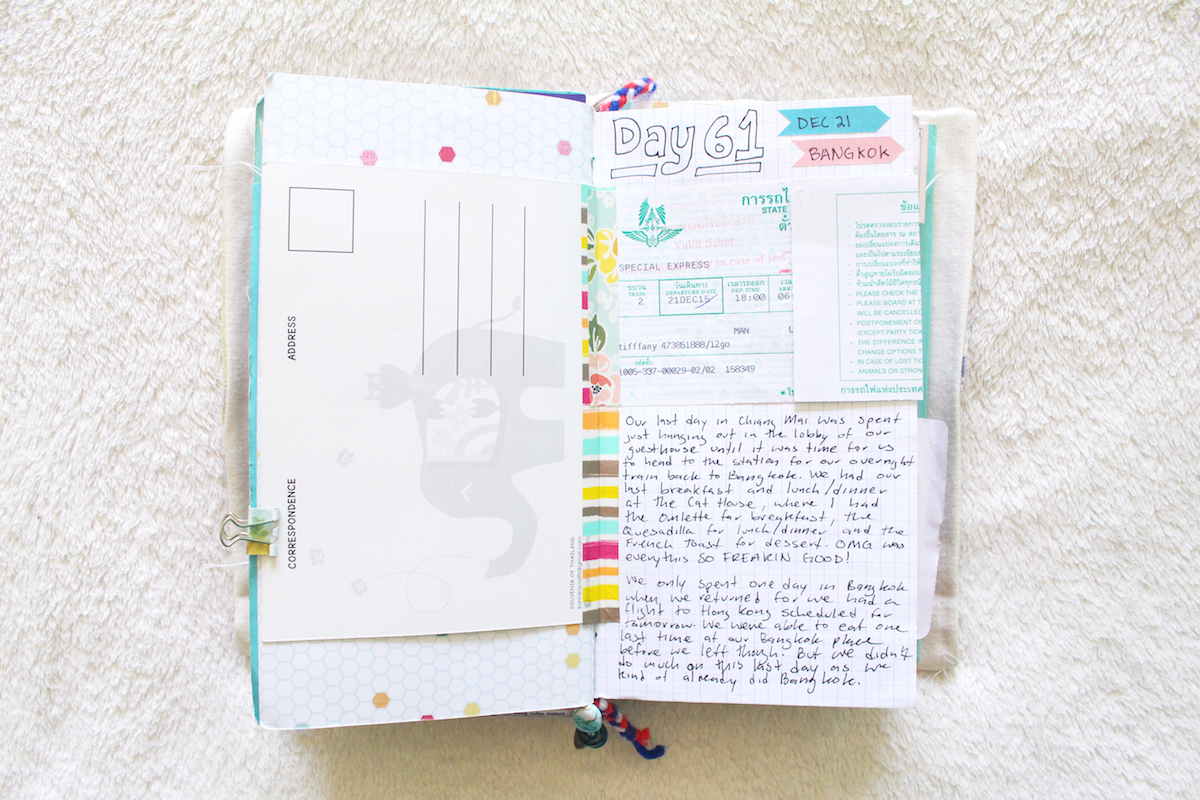 ADDRESS
CORRESPONDENCE
SOUVENIR OF THAILAND
Day 61
DEC 21
BANGKOK
การรถไ
STATE
ตั๋
Valid ticket
in case of lost
SPECIAL EXPRESS
ขบวน
TRAIN
2
วันเดินทาง
DEPARTURE DATE
21DEC15
เวลารถออก
DEP TIME
18:00
เวล
ARR
06
MAN
tifffany 473851888/12go
รหัสตั๋ว
1005-337-00029-02/02 158349
ข้อแ
PLEASE CHECK THE
PLEASE BOARD AT T
WILL BE CANCELLE
POSTPONEMENT OF
(EXCEPT PARTY TICK
THE DIFFERENCE IN
CHANGE OPTIONS T
IN CASE OF LOST TIC
ANIMALS OR STRON
การรถไฟแห่งประเท
Our last day in Chiang Mai was spent
just hanging out in the lobby of our
guesthouse until it was time for us
to head to the station for our overnight
train back to Bangkok. We had our
last breakfast and lunch/dinner
at The Cat House, where I had
the omlette for breakfast, the
Quesadilla for lunch/dinner and the
French Toast for dessert. OMG was
everything SO FREAKIN GOOD!
We only spent one day in Bangkok
when we returned for we had a
flight to Hong Kong scheduled for
tomorrow. We were able to eat one
last time at our Bangkok place
before we left though. But we didn't
do much on this last day as we
kind of already did Bangkok.